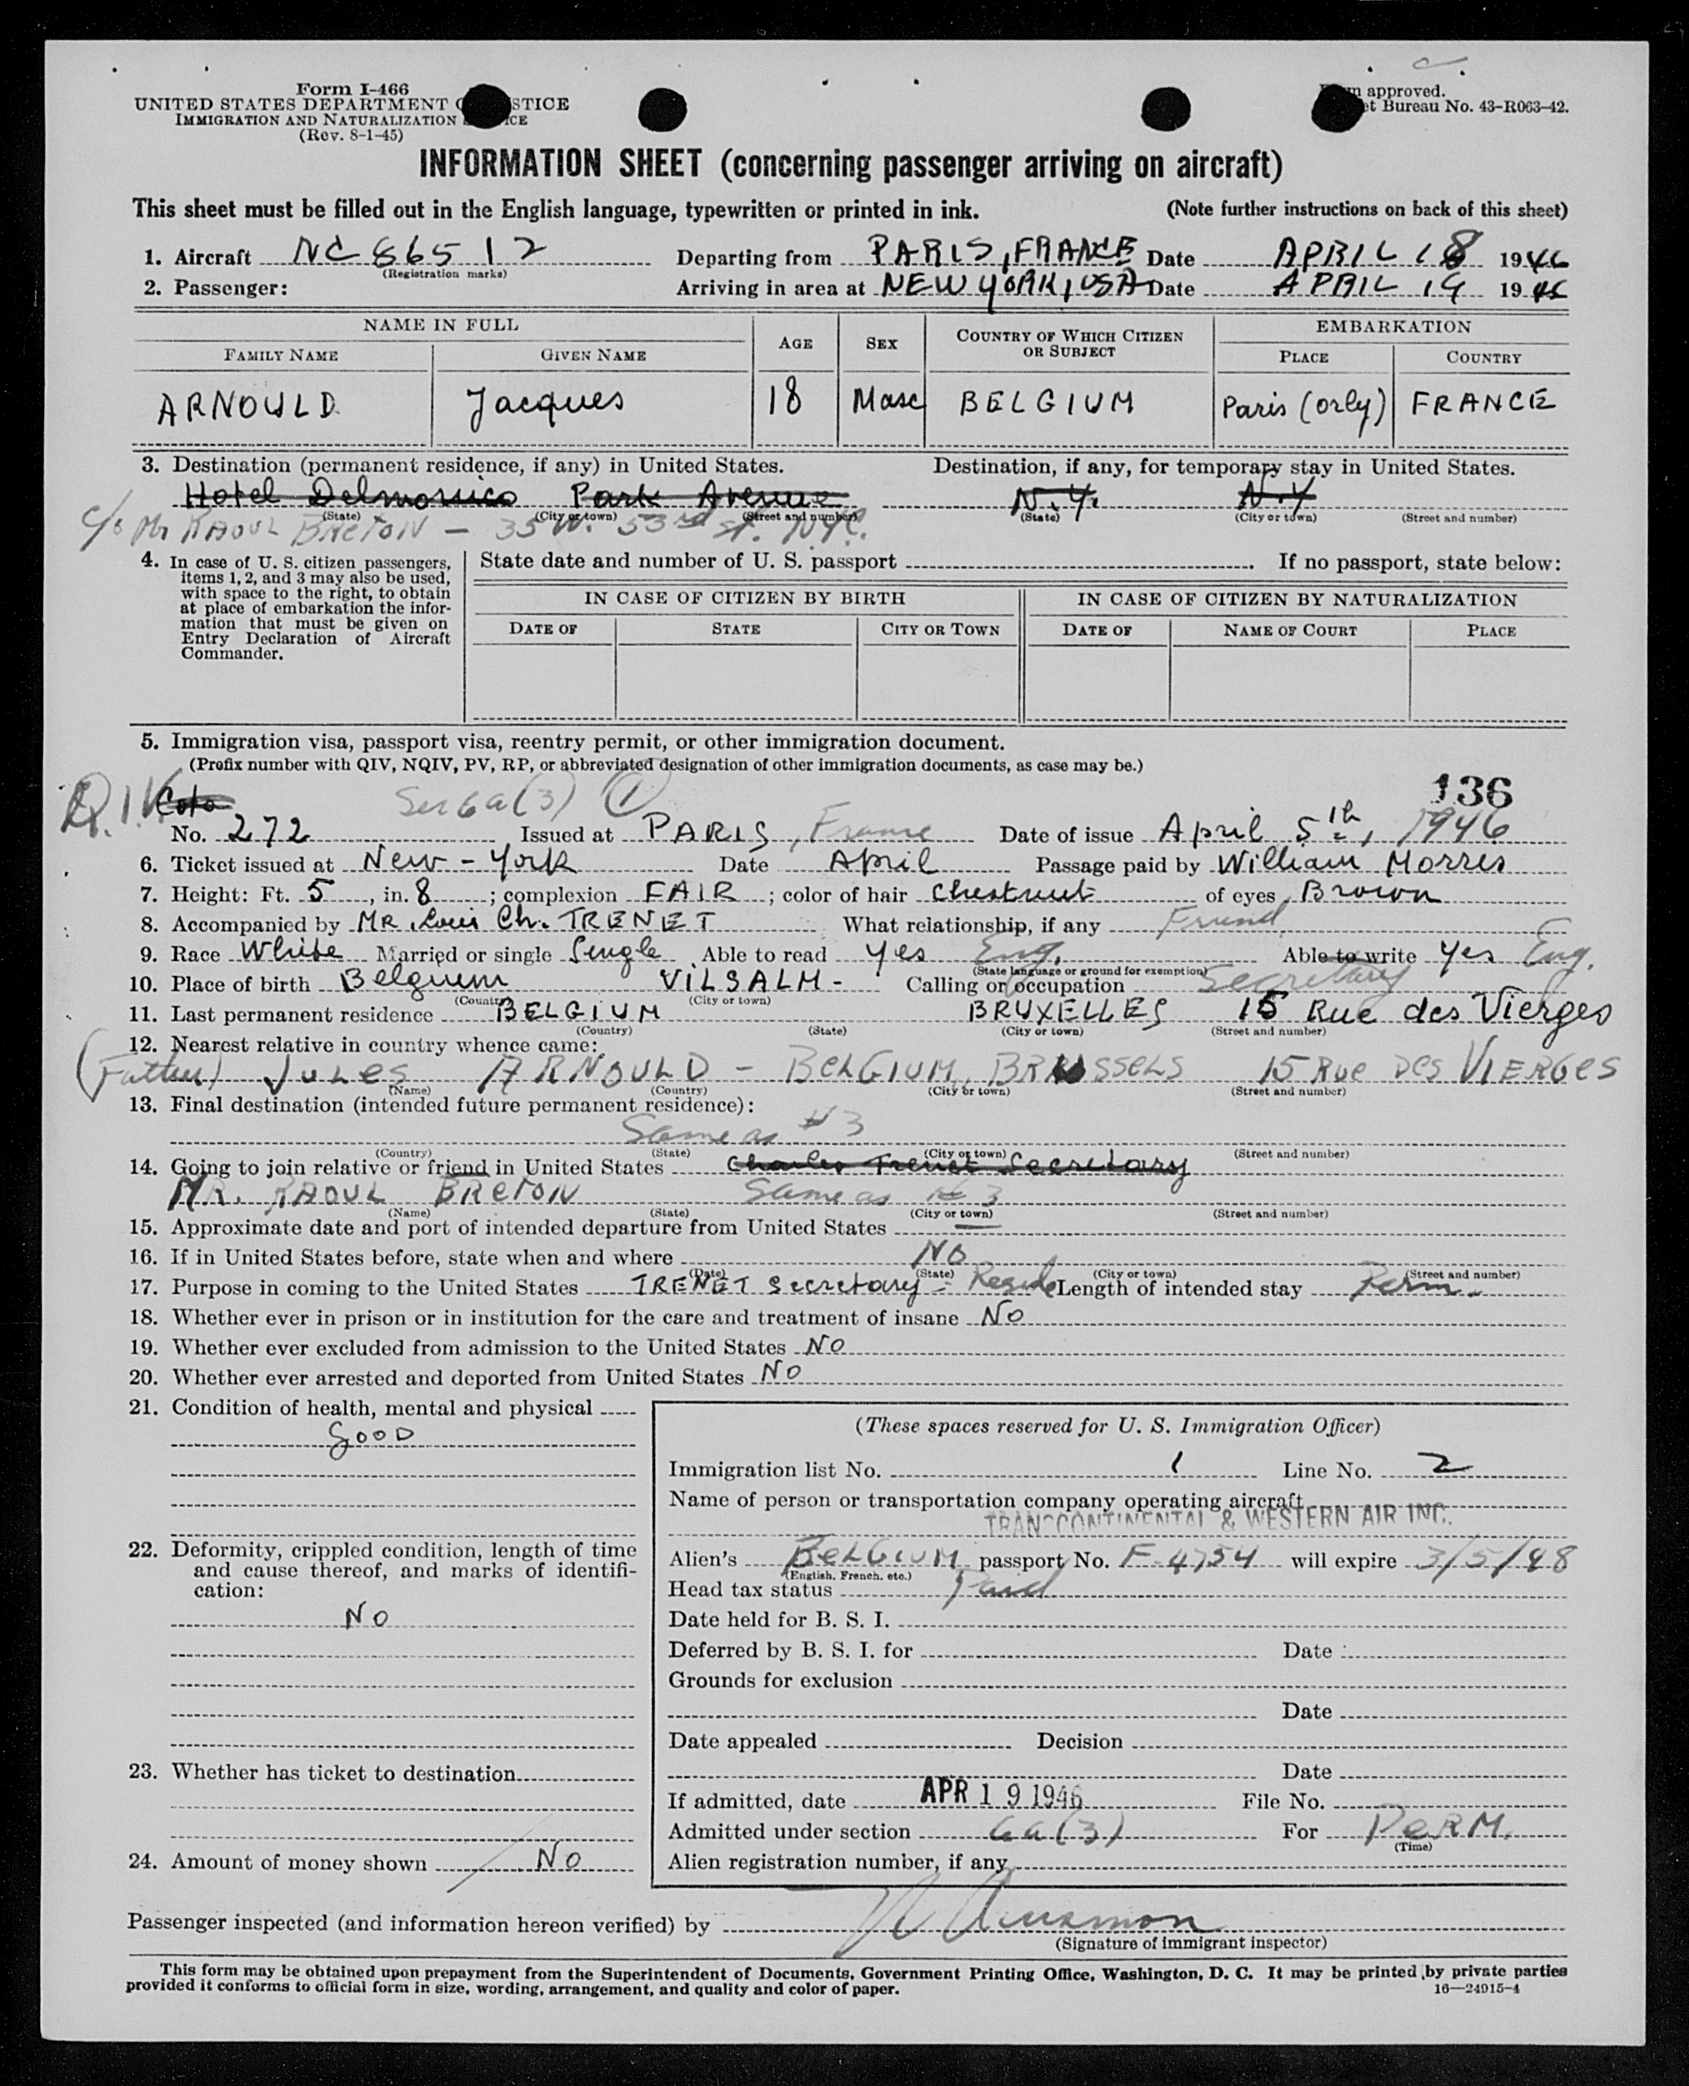 Form I-466
UNITED STATES DEPARTMENT STICE
IMMIGRATION AND NATURALIZATION ICE
(Rev. 8-1-45)
approved.
et Bureau No. 43-R063-42.
INFORMATION SHEET (concerning passenger arriving on aircraft)
This sheet must be filled out in the English language, typewritten or printed in ink. (Note further instructions on back of this sheet)
1. Aircraft NC 86512 Departing from PARIS, FRANCE Date APRIL 18 1946
(Registration marks)
2. Passenger: Arriving in area at NEW YORK, USA Date APRIL 19 1946
NAME IN FULL AGE SEX COUNTRY OF WHICH CITIZEN OR SUBJECT EMBARKATION
FAMILY NAME GIVEN NAME PLACE COUNTRY
ARNOULD Jacques 18 Masc BELGIUM Paris (orly) FRANCE
3. Destination (permanent residence, if any) in United States. Destination, if any, for temporary stay in United States.
Hotel Delmonico Park Avenue N.Y. N.Y
(State) (City or town) (Street and number) (State) (City or town) (Street and number)
c/o Mr RAOUL BRETON - 35 W. 53rd st. NYC.
4. In case of U. S. citizen passengers, items 1, 2, and 3 may also be used, with space to the right, to obtain at place of embarkation the information that must be given on Entry Declaration of Aircraft Commander.
State date and number of U. S. passport . If no passport, state below:
IN CASE OF CITIZEN BY BIRTH IN CASE OF CITIZEN BY NATURALIZATION
DATE OF STATE CITY OR TOWN DATE OF NAME OF COURT PLACE
5. Immigration visa, passport visa, reentry permit, or other immigration document.
(Prefix number with QIV, NQIV, PV, RP, or abbreviated designation of other immigration documents, as case may be.)
136
Q.I.V. Sec 6a(3) (1)
No. 272 Issued at PARIS, France Date of issue April 5th, 1946
6. Ticket issued at New-York Date April Passage paid by William Morris
7. Height: Ft. 5, in. 8; complexion FAIR; color of hair chestnut of eyes Brown
8. Accompanied by MR. Louis Ch. TRENET What relationship, if any Friend
9. Race White Married or single Single Able to read yes Eng. Able to write yes Eng.
(State language or ground for exemption)
10. Place of birth Belgium VILSALM- Calling or occupation Secretary
(Country) (City or town)
11. Last permanent residence BELGIUM BRUXELLES 15 Rue des Vierges
(Country) (State) (City or town) (Street and number)
12. Nearest relative in country whence came:
(Father) JULES ARNOULD - BELGIUM, BRUSSELS 15 RUE DES VIERGES
(Name) (Country) (City or town) (Street and number)
13. Final destination (intended future permanent residence):
Same as #3
(Country) (State) (City or town) (Street and number)
14. Going to join relative or friend in United States Charles Trenet Secretary
MR. RAOUL BRETON Same as # 3
(Name) (State) (City or town) (Street and number)
15. Approximate date and port of intended departure from United States —
16. If in United States before, state when and where NO
(Date) (State) (City or town) (Street and number)
17. Purpose in coming to the United States TRENET Secretary - Reside Length of intended stay Perm.
18. Whether ever in prison or in institution for the care and treatment of insane NO
19. Whether ever excluded from admission to the United States NO
20. Whether ever arrested and deported from United States NO
21. Condition of health, mental and physical
GOOD
22. Deformity, crippled condition, length of time and cause thereof, and marks of identification:
NO
23. Whether has ticket to destination
24. Amount of money shown NO
(These spaces reserved for U. S. Immigration Officer)
Immigration list No. 1 Line No. 2
Name of person or transportation company operating aircraft
TRANSCONTINENTAL & WESTERN AIR INC.
Alien's BELGIUM passport No. F-4754 will expire 3/5/48
(English, French, etc.)
Head tax status Paid
Date held for B. S. I.
Deferred by B. S. I. for Date
Grounds for exclusion
Date
Date appealed Decision
Date
If admitted, date APR 19 1946 File No.
Admitted under section 6a(3) For PERM.
(Time)
Alien registration number, if any
Passenger inspected (and information hereon verified) by
(Signature of immigrant inspector)
This form may be obtained upon prepayment from the Superintendent of Documents, Government Printing Office, Washington, D. C. It may be printed by private parties
provided it conforms to official form in size, wording, arrangement, and quality and color of paper. 16—24915-4